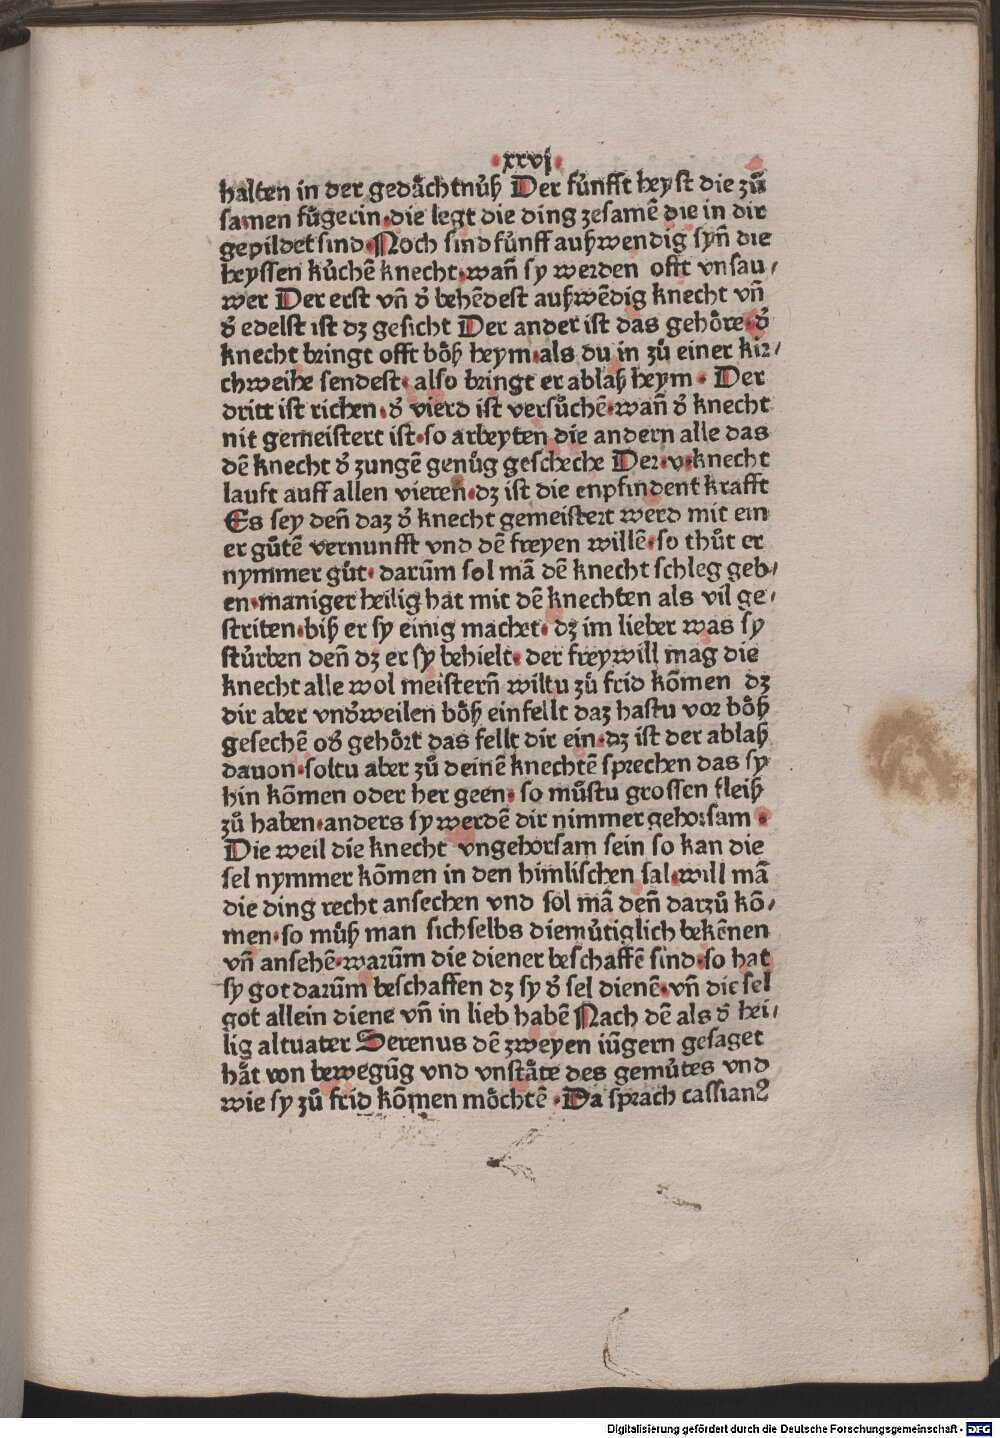 ·xxvj·
halten in der gedåchtnůß Der fůnfft heyst die zů
samen fůgerin·die legt die ding zesamē die in dir
gepildet sind·Noch sind fůnff außwendig syn̄ die
heyssen kůchē knecht·wan̄ sy werden offt vnsau⸗
wer Der erst vn̄ d̓ behēdest außwēdig knecht vn̄
d̓ edelst ist dz gesicht Der ander ist das gehőre·d̓
knecht bringt offt bőß heym·als du in zů einer kir⸗
chweihe sendest·also bringt er ablaß heym· Der
dritt ist richen·d̓ vierd ist versůchē·wan̄ d̓ knecht
nit gemeistert ist·so arbeyten die andern alle das
dē knecht d̓ zungē genůg gescheche Der·v·knecht
lauft auff allen vieren·dz ist die enpfindent krafft
Es sey den̄ daz d̓ knecht gemeistert werd mit ein
er gůtē vernunfft vnd dē freyen willē·so thůt er
nymmer gůt·darūm sol mā dē knecht schleg geb⸗
en·maniger heilig hat mit dē knechten als vil ge⸗
striten·biß er sy einig machet·dz im lieber was sy
stůrben den̄ dz er sy behielt·der freywill mag die
knecht alle wol meistern̄ wiltu zů frid kōmen dz
dir aber vnd̓weilen bőß einfellt daz hastu vor bőß
gesechē od̓ gehőrt das fellt dir ein·dz ist der ablaß
dauon·soltu aber zů deinē knechtē sprechen das sy
hin kōmen oder her geen·so můstu grossen fleiß
zů haben·anders sy werdē dir nimmer gehorsam·
Die weil die knecht vngehorsam sein so kan die
sel nymmer kōmen in den himlischen sal·will mā
die ding recht ansechen vnd sol mā den̄ darzů kō⸗
men·so můß man sichselbs diemůtiglich bekēnen
vn̄ ansehē·warūm die diener beschaffē sind·so hat
sy got darūm beschaffen dz sy d̓ sel dienē·vn̄ die sel
got allein diene vn̄ in lieb habē Nach dē als d̓ hei⸗
lig altuater Serenus dē zweyen iūgern gesaget
håt von bewegūg vnd vnståte des gemůtes vnd
wie sy zů frid kōmen mőchtē·Da sprach cassianꝰ
Digitalisierung gefördert durch die Deutsche Forschungsgemeinschaft - DFG